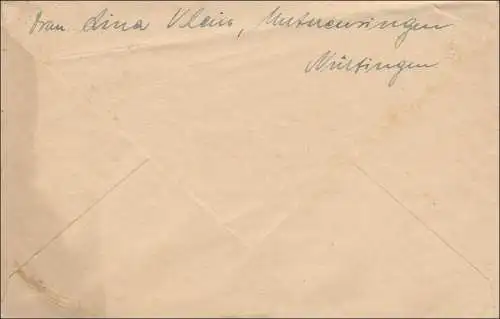 Frau Lina Klein, Unterensingen
Nürtingen